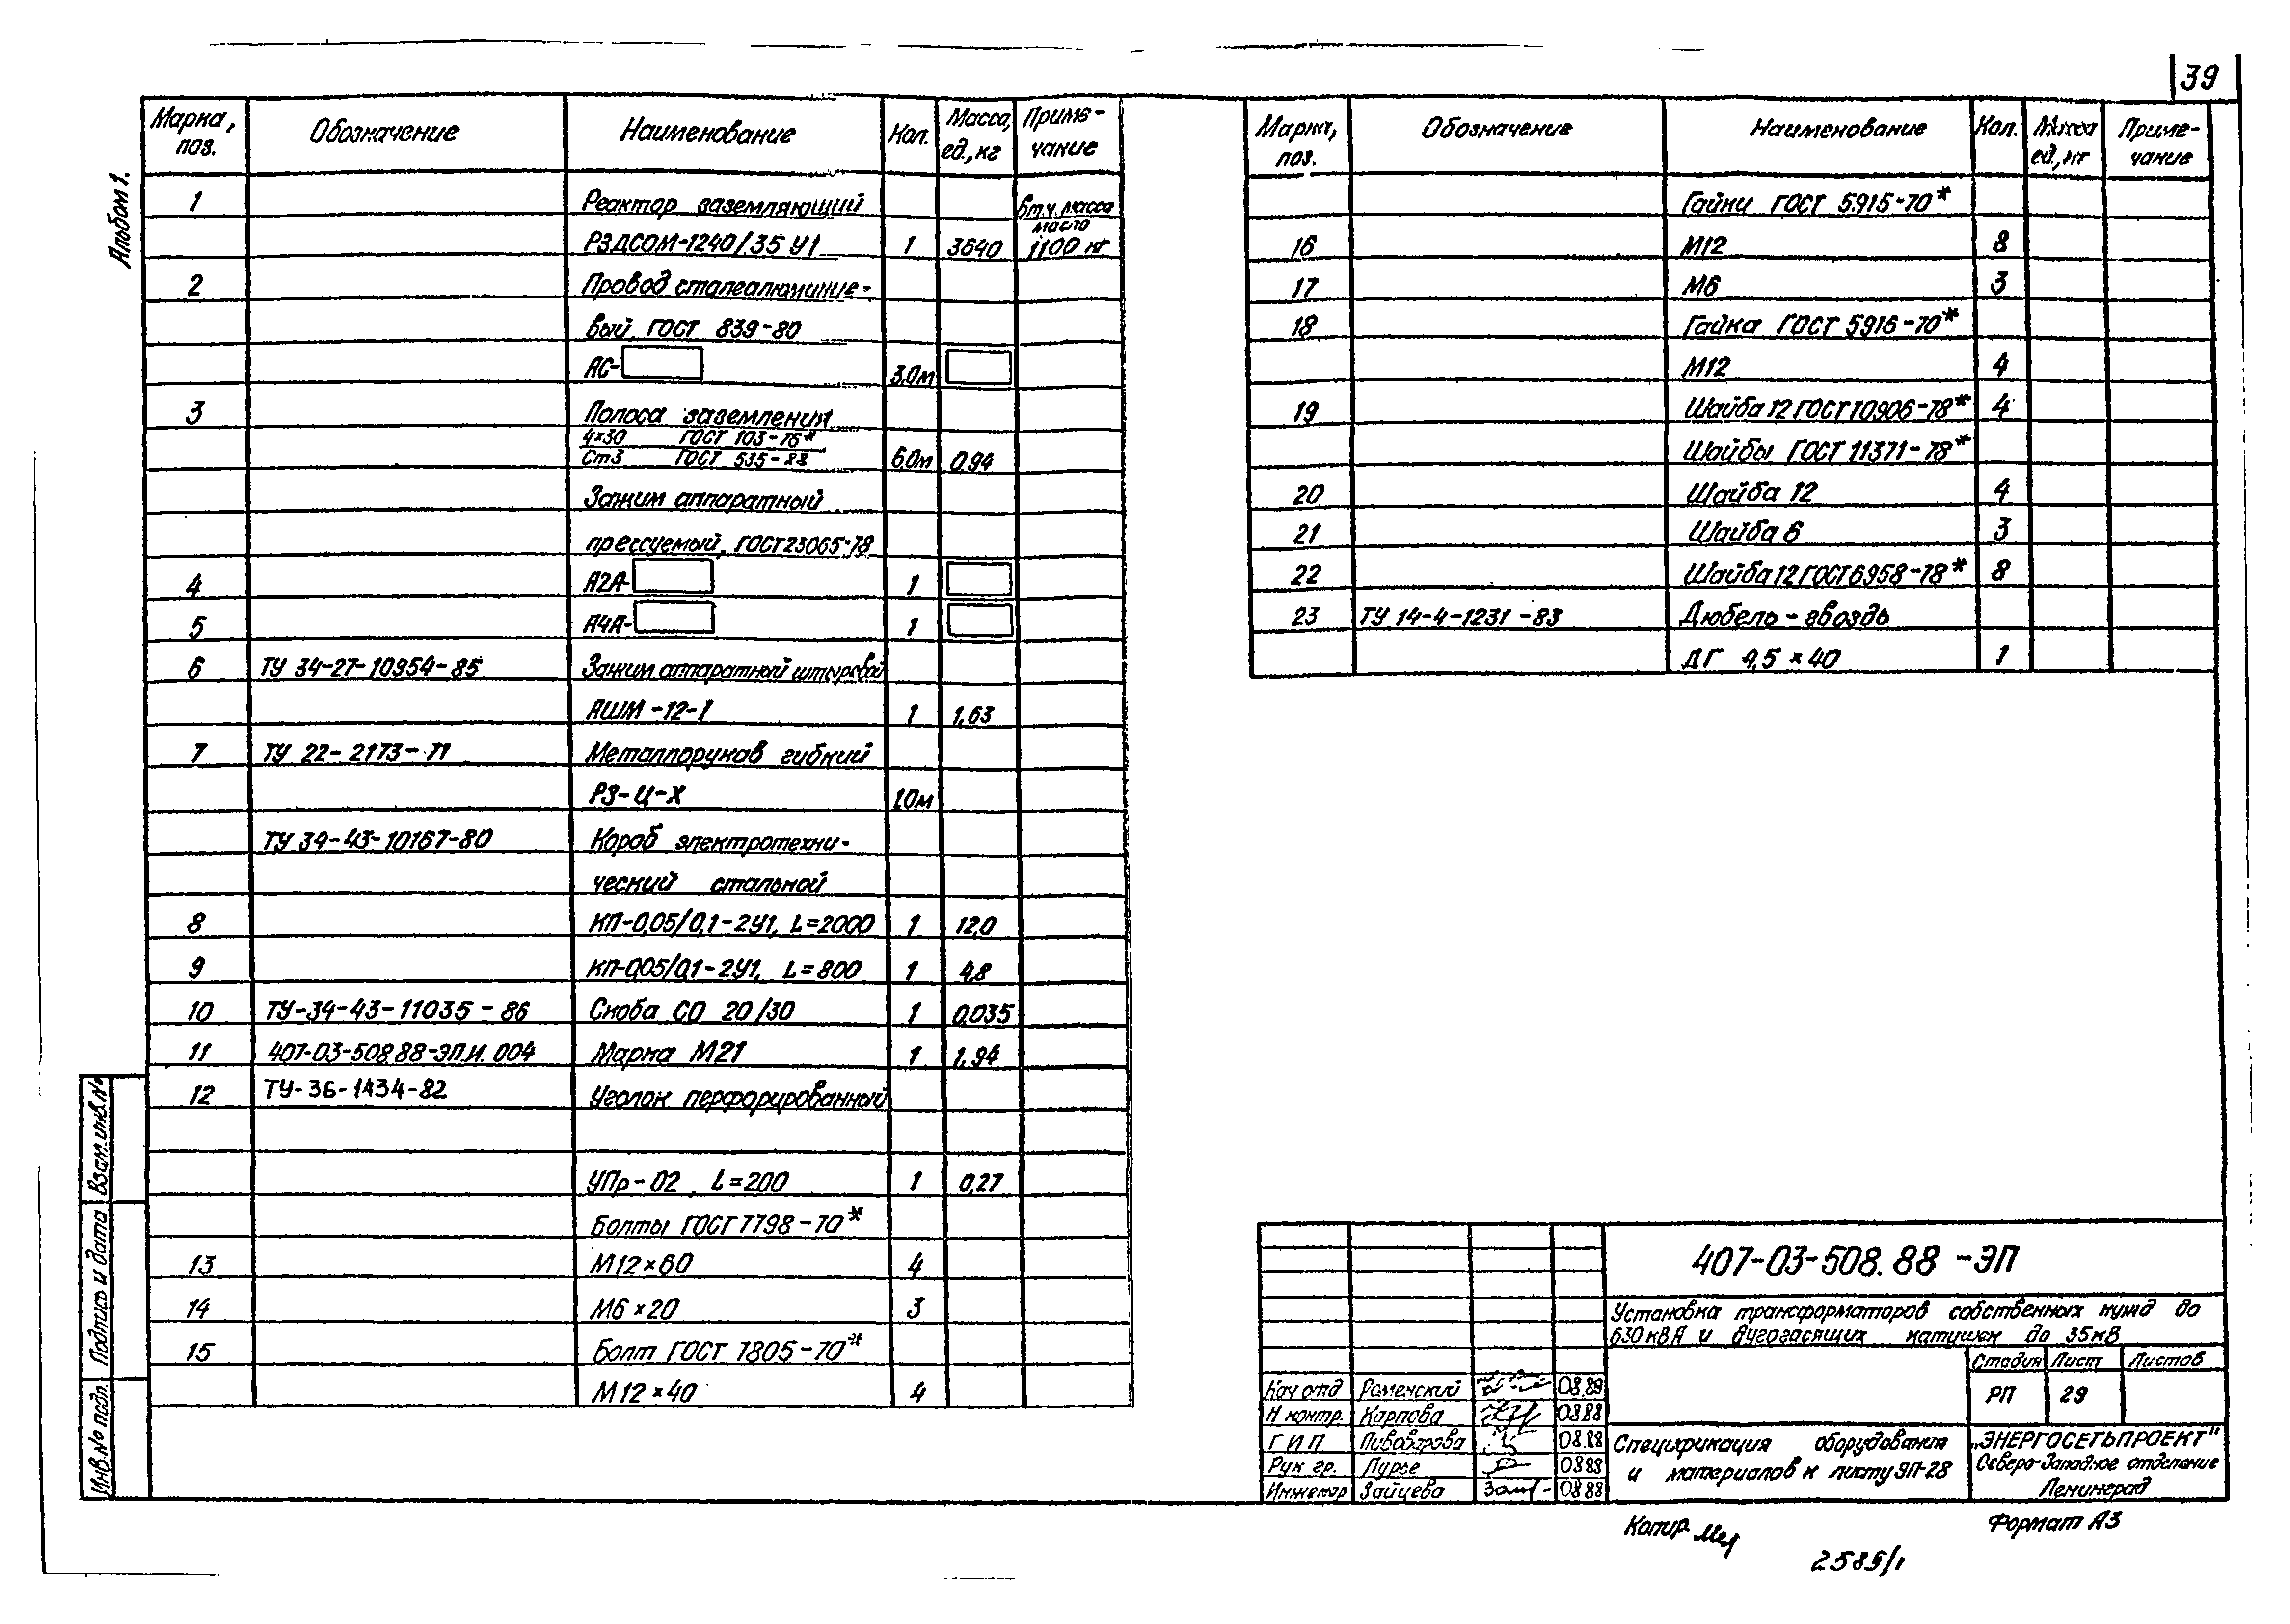 39
Альбом 1.
Марка, поз. Обозначение Наименование Кол. Масса, ед., кг Приме-чание
1 Реактор заземляющий в т.ч. масса
РЗДСОМ-1240/35 У1 1 3640 масло 1100 кг
2 Провод сталеалюминие-
вый, ГОСТ 839-80
АС- 3,0м
3 Полоса заземления
4×30 ГОСТ 103-76*
Ст3 ГОСТ 535-88 6,0м 0,94
Зажим аппаратный
прессуемый, ГОСТ 23065-78
4 А2А- 1
5 А4А- 1
6 ТУ 34-27-10954-85 Зажим аппаратный штыревой
АШМ-12-1 1 1,63
7 ТУ 22-2173-71 Металлорукав гибкий
РЗ-Ц-Х 1,0м
ТУ 34-43-10167-80 Короб электротехни-
ческий стальной
8 КП-0,05/0,1-2У1, L=2000 1 12,0
9 КП-0,05/0,1-2У1, L=800 1 4,8
10 ТУ-34-43-11035-86 Скоба СО 20/30 1 0,035
11 407-03-508.88-ЭП.И. 004 Марка М21 1 1,94
12 ТУ-36-1434-82 Уголок перфорированный
УПр-02, L=200 1 0,27
Болты ГОСТ 7798-70*
13 М12×60 4
14 М6×20 3
15 Болт ГОСТ 7805-70*
М12×40 4
Марка, поз. Обозначение Наименование Кол. Масса ед., кг Приме-чание
Гайки ГОСТ 5915-70*
16 М12 8
17 М6 3
18 Гайка ГОСТ 5916-70*
М12 4
19 Шайба 12 ГОСТ 10906-78* 4
Шайбы ГОСТ 11371-78*
20 Шайба 12 4
21 Шайба 6 3
22 Шайба 12 ГОСТ 6958-78* 8
23 ТУ 14-4-1231-83 Дюбель-гвоздь
ДГ 4,5×40 1
Инв.№ подл. Подпись и дата Взам.инв.№
407-03-508.88-ЭП
Установка трансформаторов собственных нужд до
630 кВА и дугогасящих катушек до 35 кВ
Стадия Лист Листов
РП 29
Нач отд Роменский 08.89
Н контр. Карпова 08.88
ГИП Пивоварова 08.88
Рук гр. Пурсе 08.88
Инженер Зайцева 08.88
Спецификация оборудования
и материалов к листу ЭП-28
„ЭНЕРГОСЕТЬПРОЕКТ"
Северо-Западное отделение
Ленинград
Копир. Формат А3
2585/1